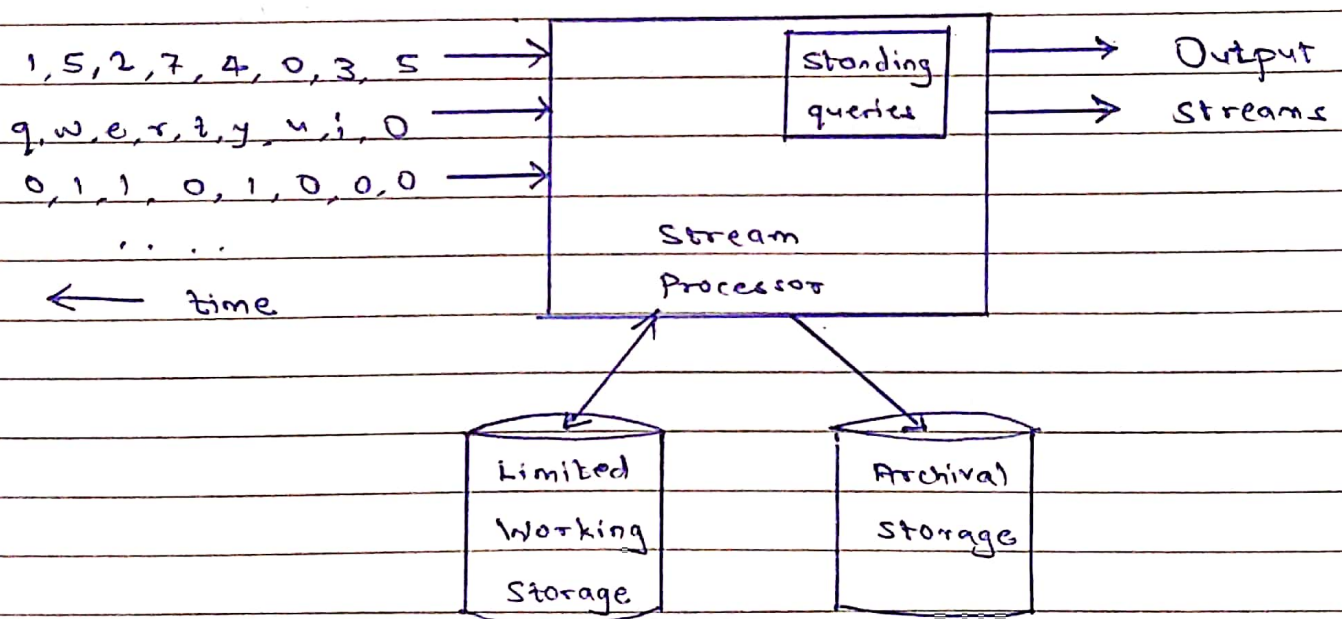 1, 5, 2, 7, 4, 0, 3, 5
q, w, e, r, t, y, u, i, o
0, 1, 1, 0, 1, 0, 0, 0
. . . .
← time
Standing
queries
Stream
Processor
Output
Streams
Limited
Working
Storage
Archival
Storage